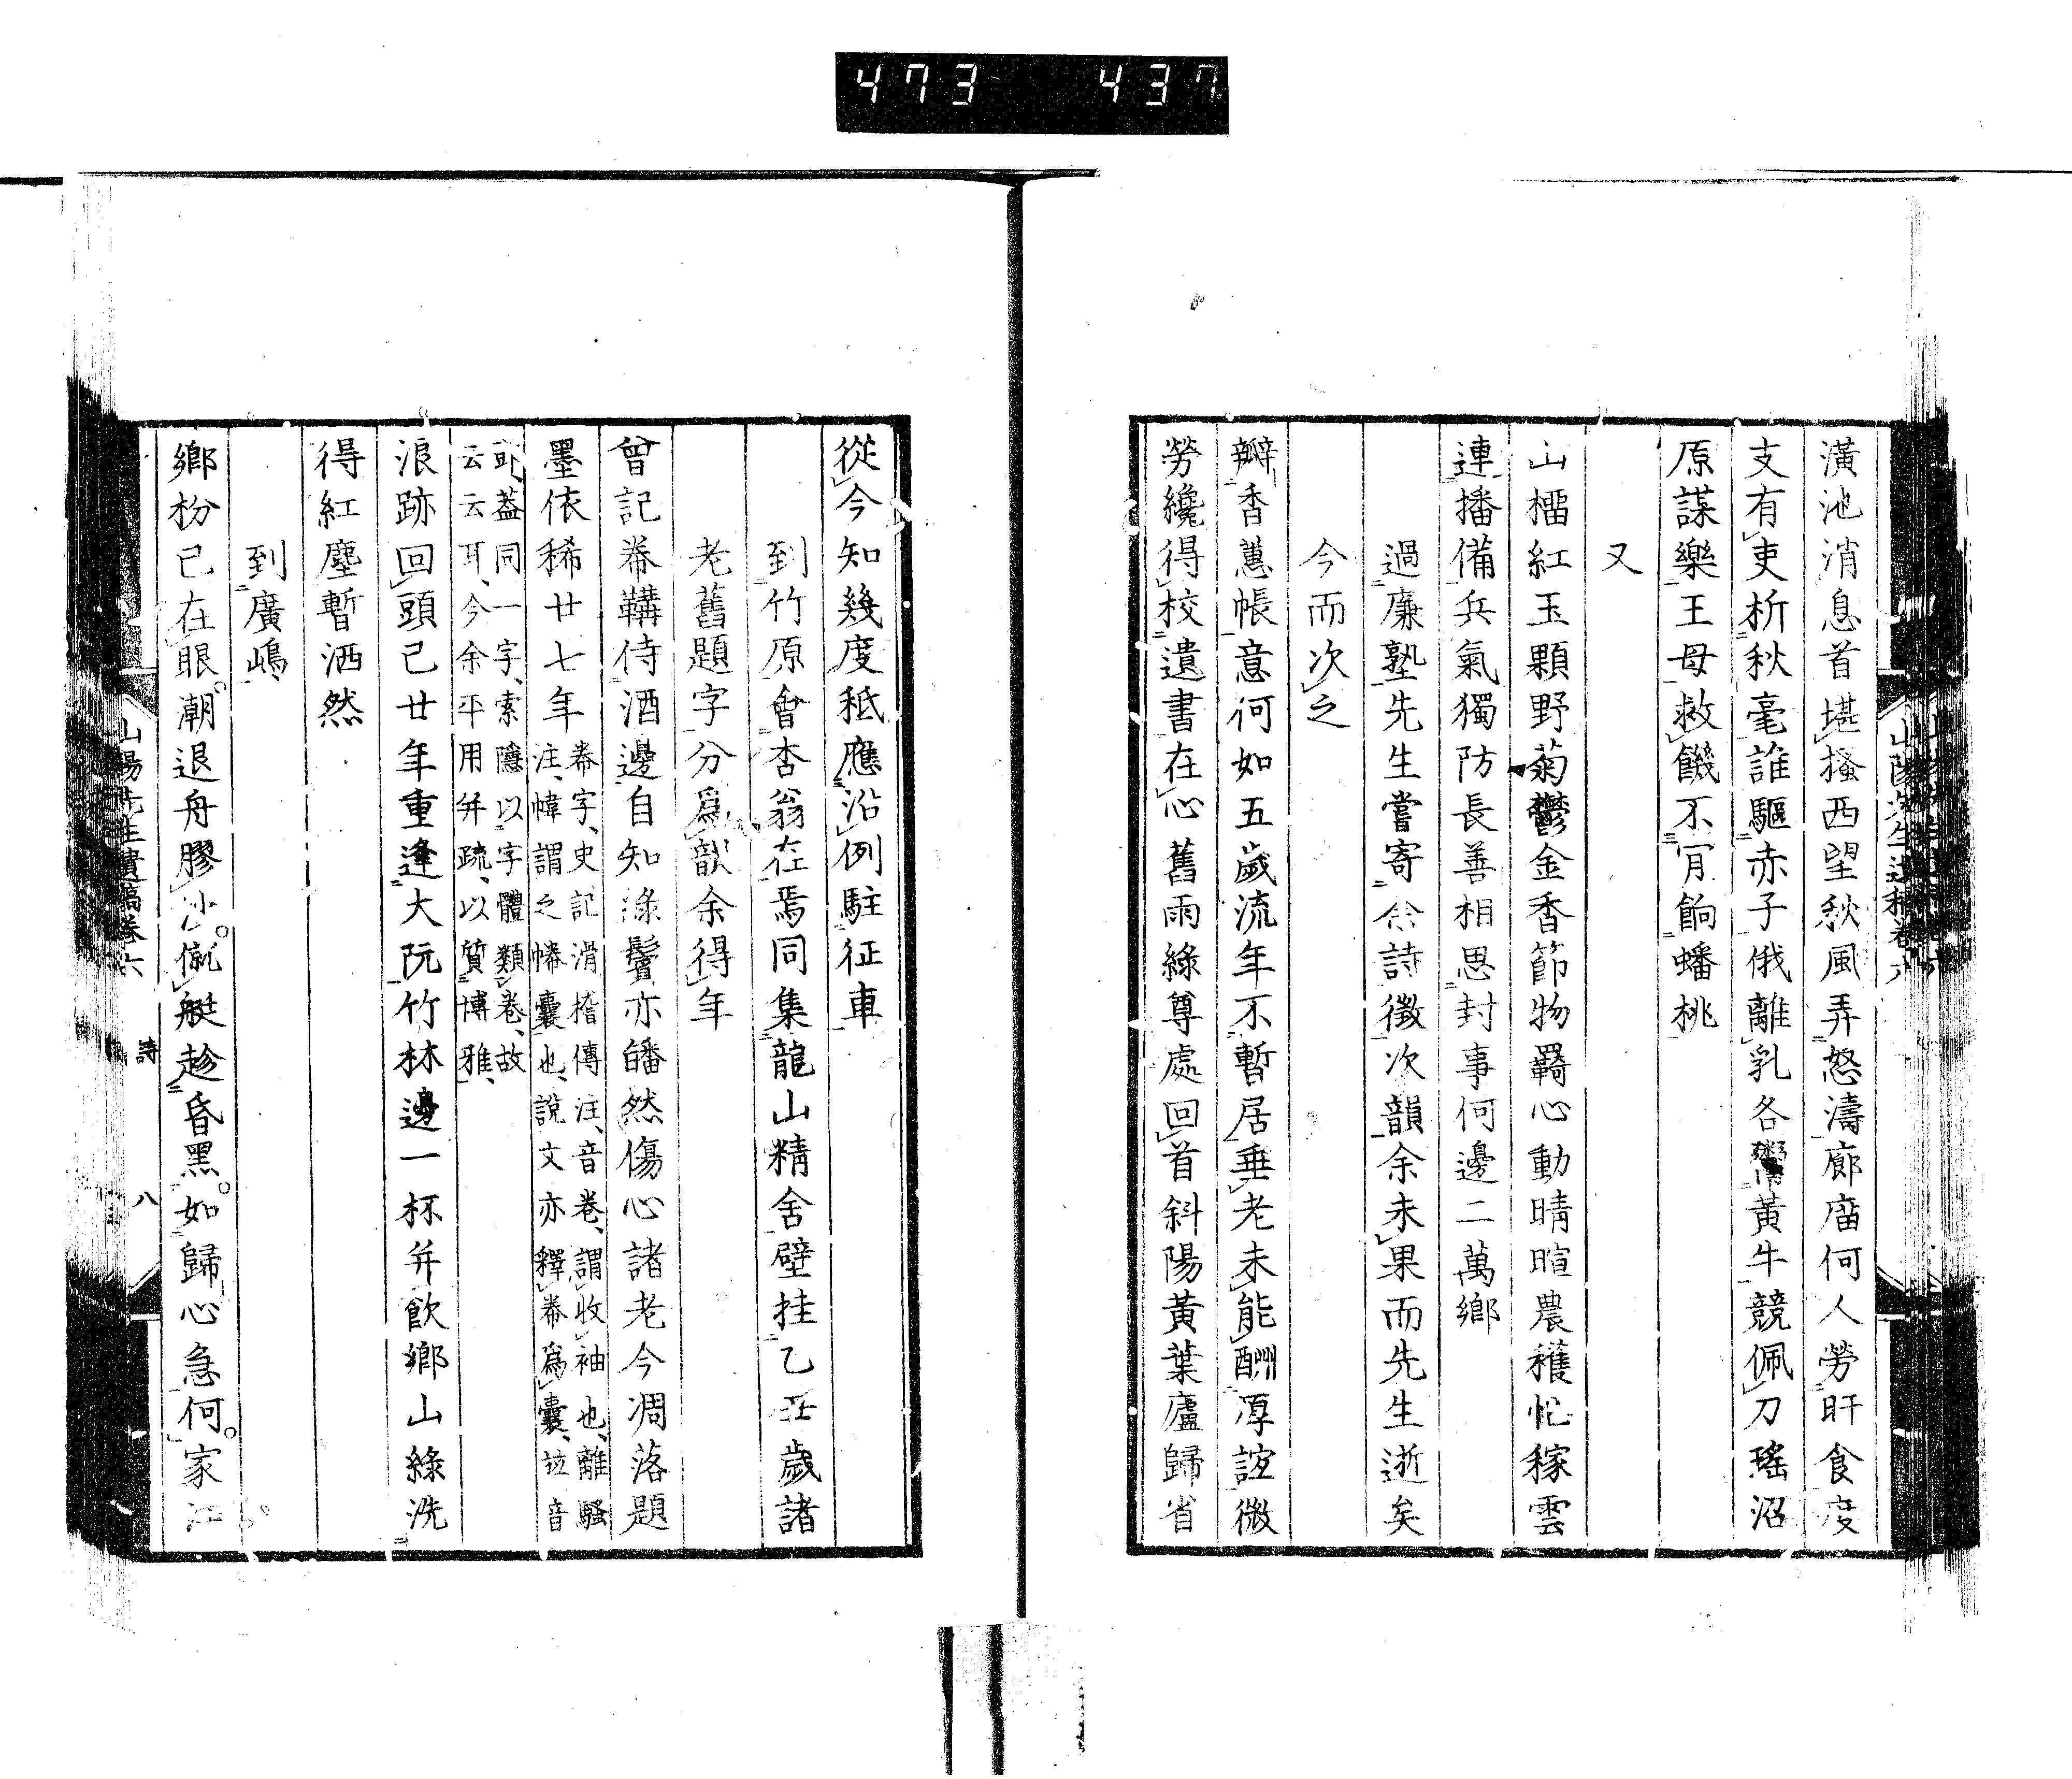 473 437
潢池消息首堪搔西望秋風弄怒濤廊庿何人勞旰食度
支有吏析秋毫誰驅赤子俄離乳各鬻黃牛競佩刀瑤沼
原謀樂王母救饑不肎餉蟠桃
又
山櫑紅玉顆野菊鬱金香節物羇心動晴暄農穫忙稼雲
連播備兵氣獨防長善相思封事何邊二萬鄉
過廉塾先生嘗寄余詩徵次韻余未果而先生逝矣
今而次之
瓣香蕙帳意何如五歲流年不暫居垂老未能酬厚誼微
勞纔得校遺書在心舊雨綠尊處回首斜陽黃葉廬歸省
從今知幾度秪應沿例駐征車
到竹原曾杏翁在焉同集龍山精舍壁挂乙丑歲諸
老舊題字分爲韻余得年
曾記帣鞲侍酒邊自知綠鬢亦皤然傷心諸老今凋落題
墨依稀廿七年
帣字、史記滑稽傳注、音卷、謂收袖也、離騷
注、幃謂之幐囊也、說文亦釋帣爲囊、竝音
可、葢同一字、索隱以字體類卷、故
云云耳、今余平用幷疏、以質博雅、
浪跡回頭已廿年重逢大阮竹林邊一杯幷飮鄉山綠洗
得紅塵暫洒然
到廣嶋、
鄉枌已在眼潮退舟膠沙僦艇趁昏黑如歸心急何家江
山陽先生遺稿卷六 詩 八